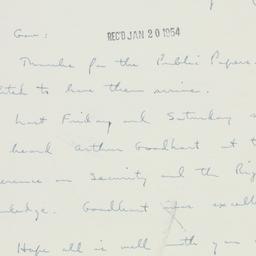 Gov:
REC'D JAN 20 1954
Thanks for the Public Papers.
to have them arrive.
Last Friday and Saturday
heard Arthur Goodhart at t
erence on Security and the Rig
wledge. Goodhart was excell
Hope all is well with you